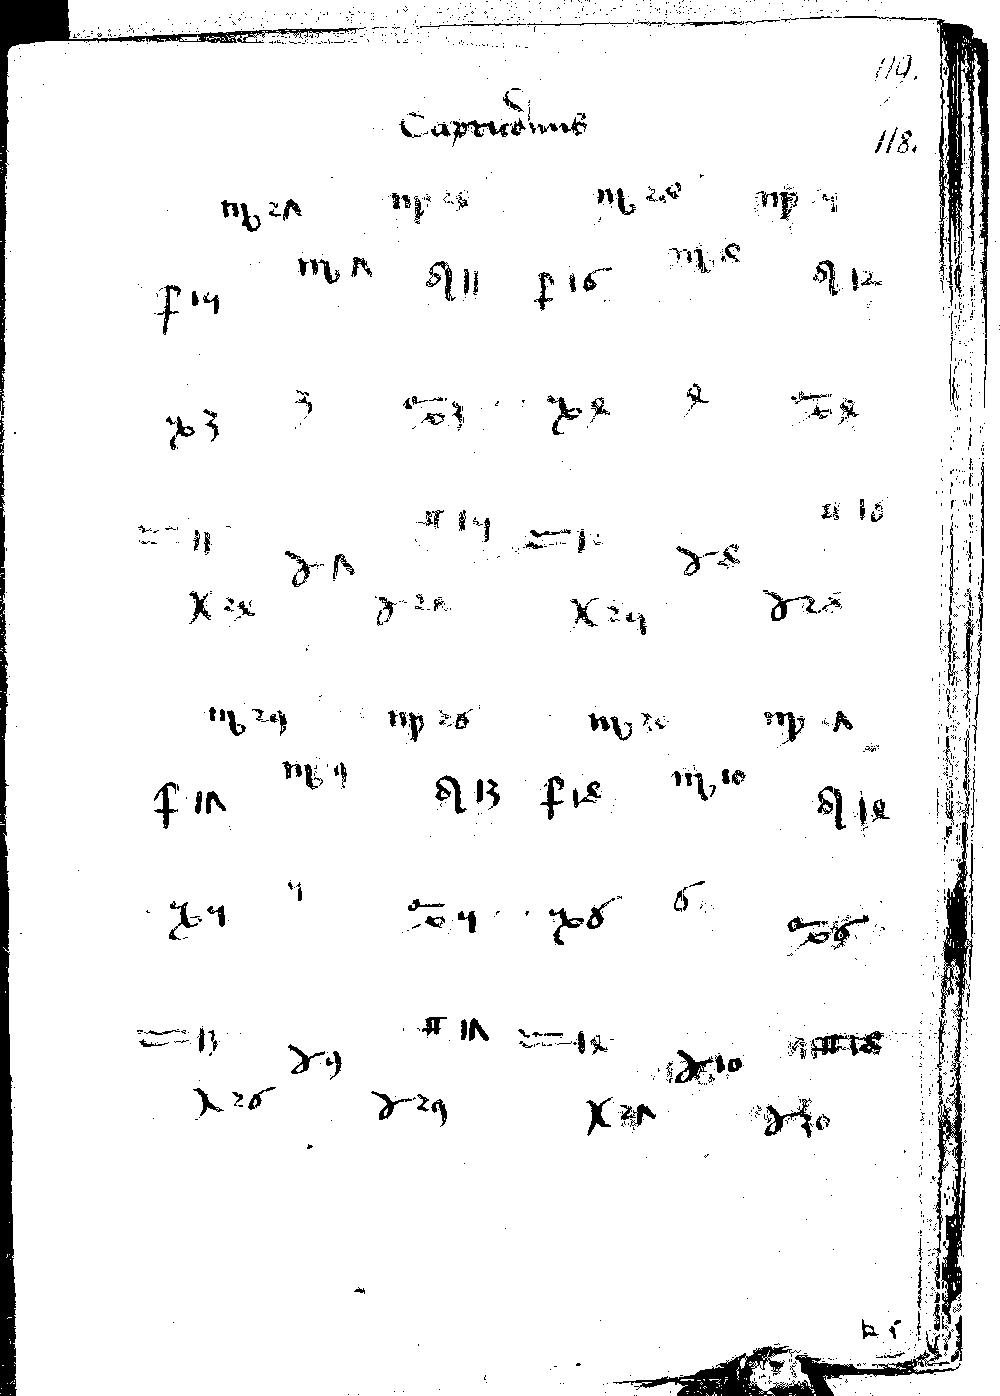 119.
Capricornus
118.
♏27 ♍24 ♏28 ♍25
♏7 ♏8
♐15 ♌11 ♐16 ♌12
♑3 3 ♋3 ♑4 4 ♋4
♒11 ♊15 ♒12 ♊16
♉7 ♉8
♓24 ♉27 ♓25 ♉28
♏29 ♍26 ♏ ♍27
♏9 ♏10
♐17 ♌13 ♐18 ♌14
♑5 5 ♋5 ♑6 6 ♋6
♒13 ♊17 ♒14 ♊18
♉9 ♉10
♓26 ♉29 ♓27 ♉30